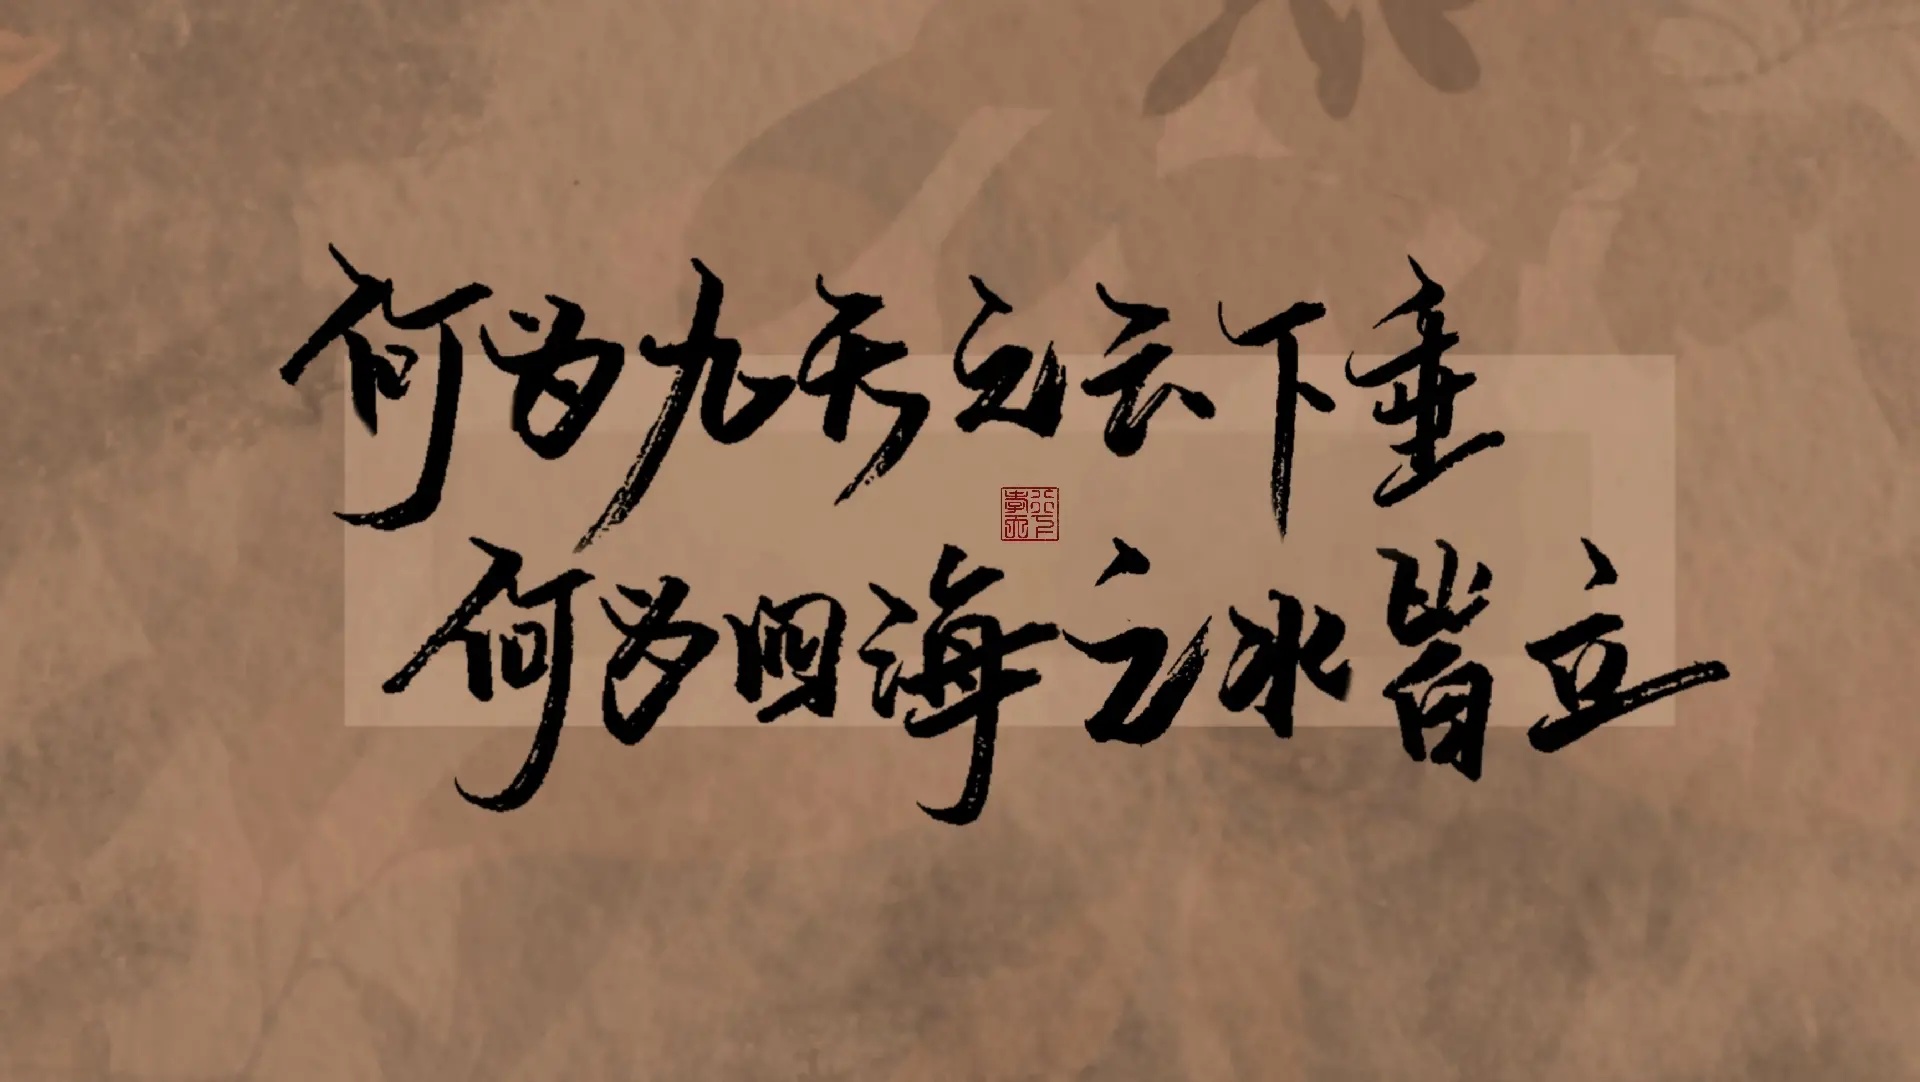 何为九天之云下垂
何为四海之水皆立